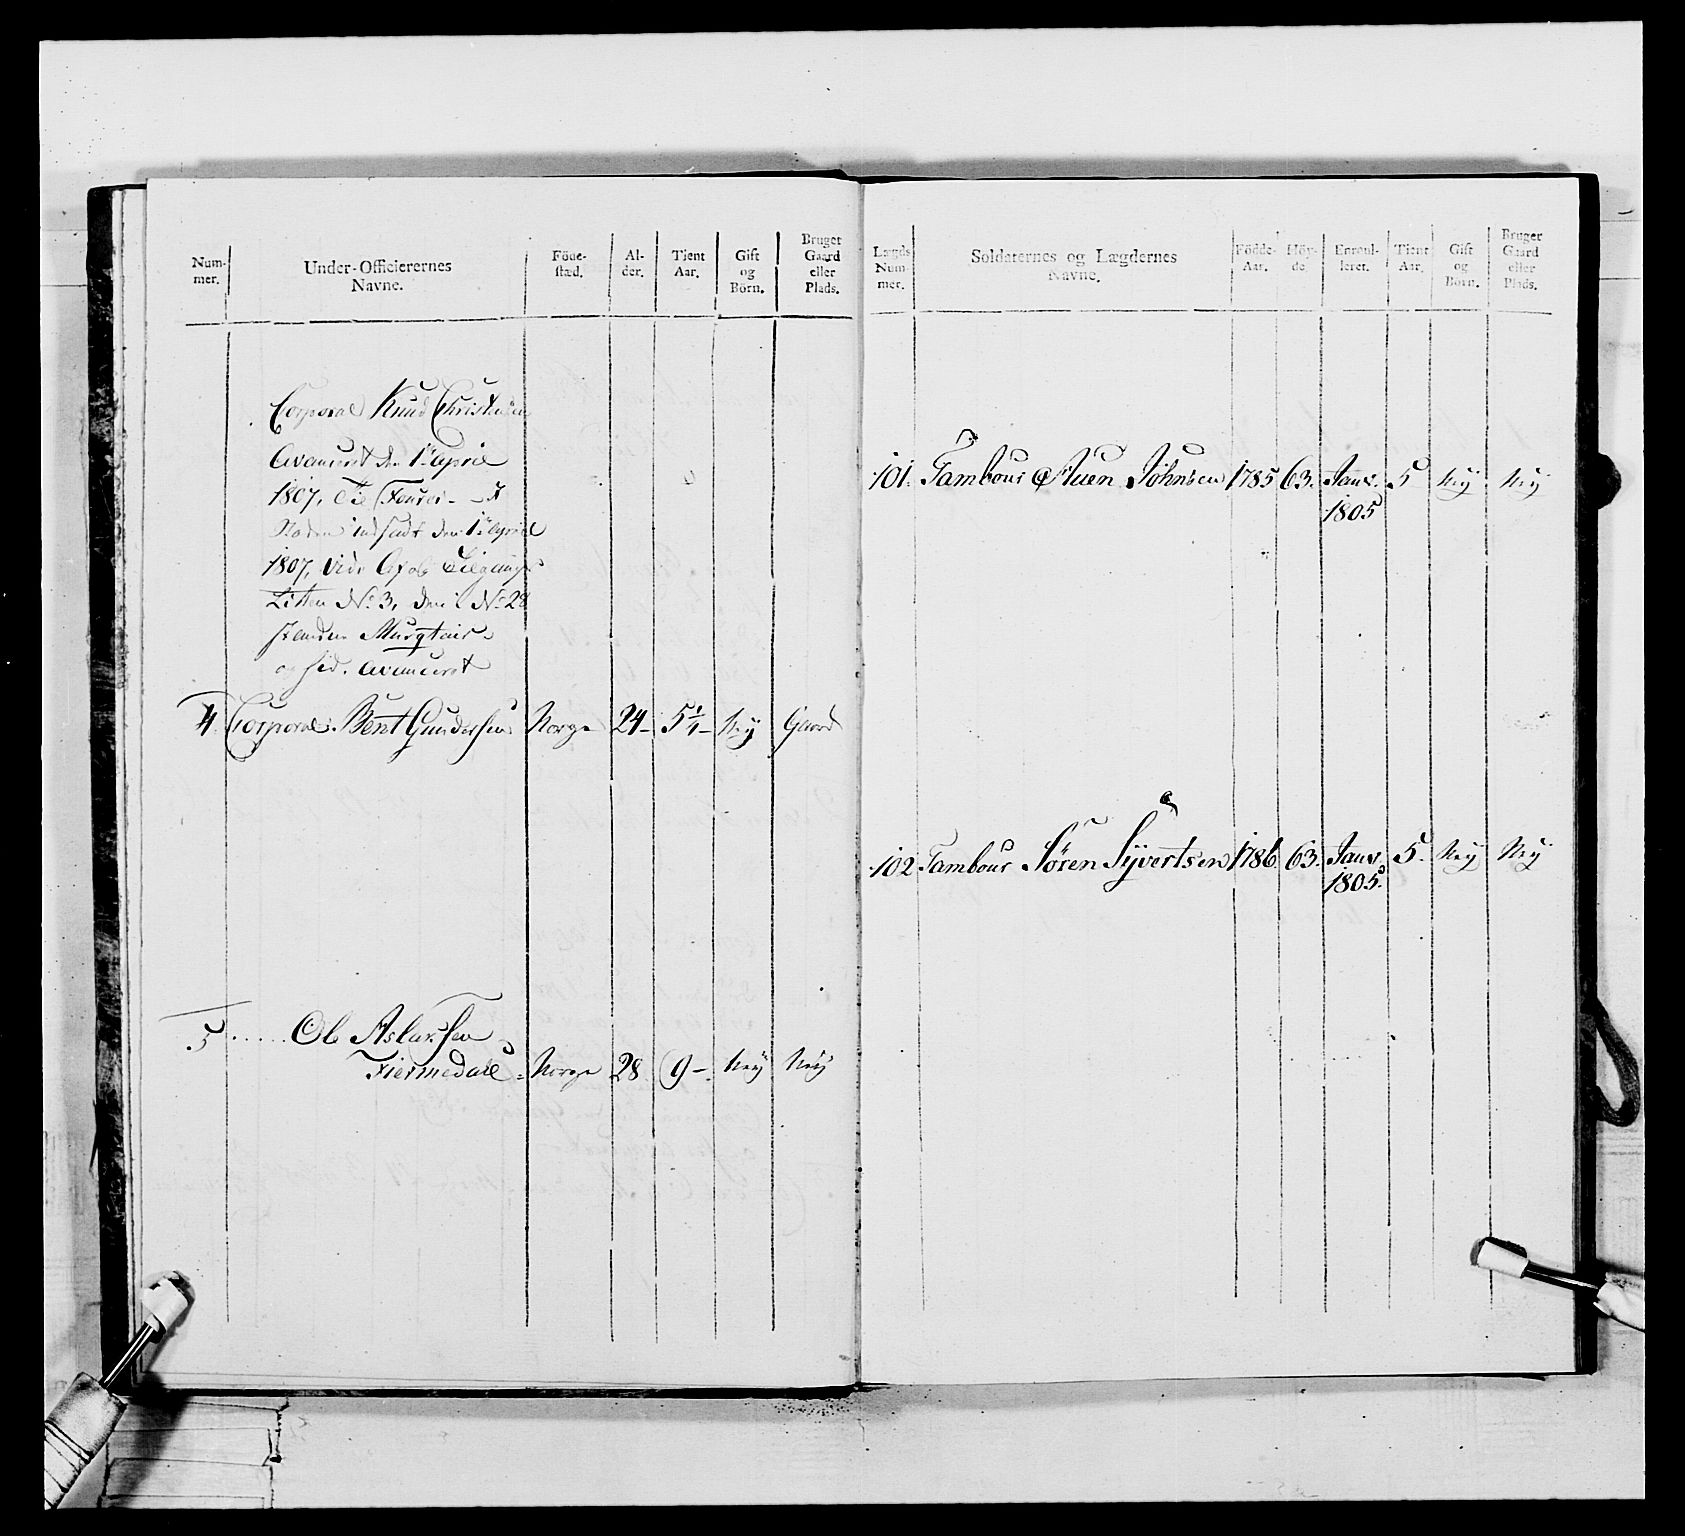 Num-
mer.
Under-Officierernes
Navne.
Föde-
stæd.
Al-
der.
Tient
Aar.
Gift
og
Börn.
Bruger
Gaard
eller
Plads.
Corporal Knud Christensen
Avanceret den 1te April
1807, til Fourer - I
Stæden indsadt den 1te April
1807, vide Af og Tilgangs
Listen No 3, den i No 28
standen
og Avanceret
4. Corporal Bent Gundersen Norge 24 - 5 1/4 - Nej Gaard
5 ..... Ole Aslaksen
Fiermedall - Norge 28 9 - Nej Nej
Lægds
Num-
mer.
Soldaternes og Lægdernes
Navne.
Födde-
Aar.
Höy-
de
Enroul-
leret.
Tient
Aar.
Gift
og
Börn.
Bruger
Gaard
eller
Plads.
101. Tambour Auen Johnsen 1785 63. Janv. 5 Nej Nej
1805
102 Tambour Sören Syvertsen 1786 63. Janv. 5. Nej Nej
1805.